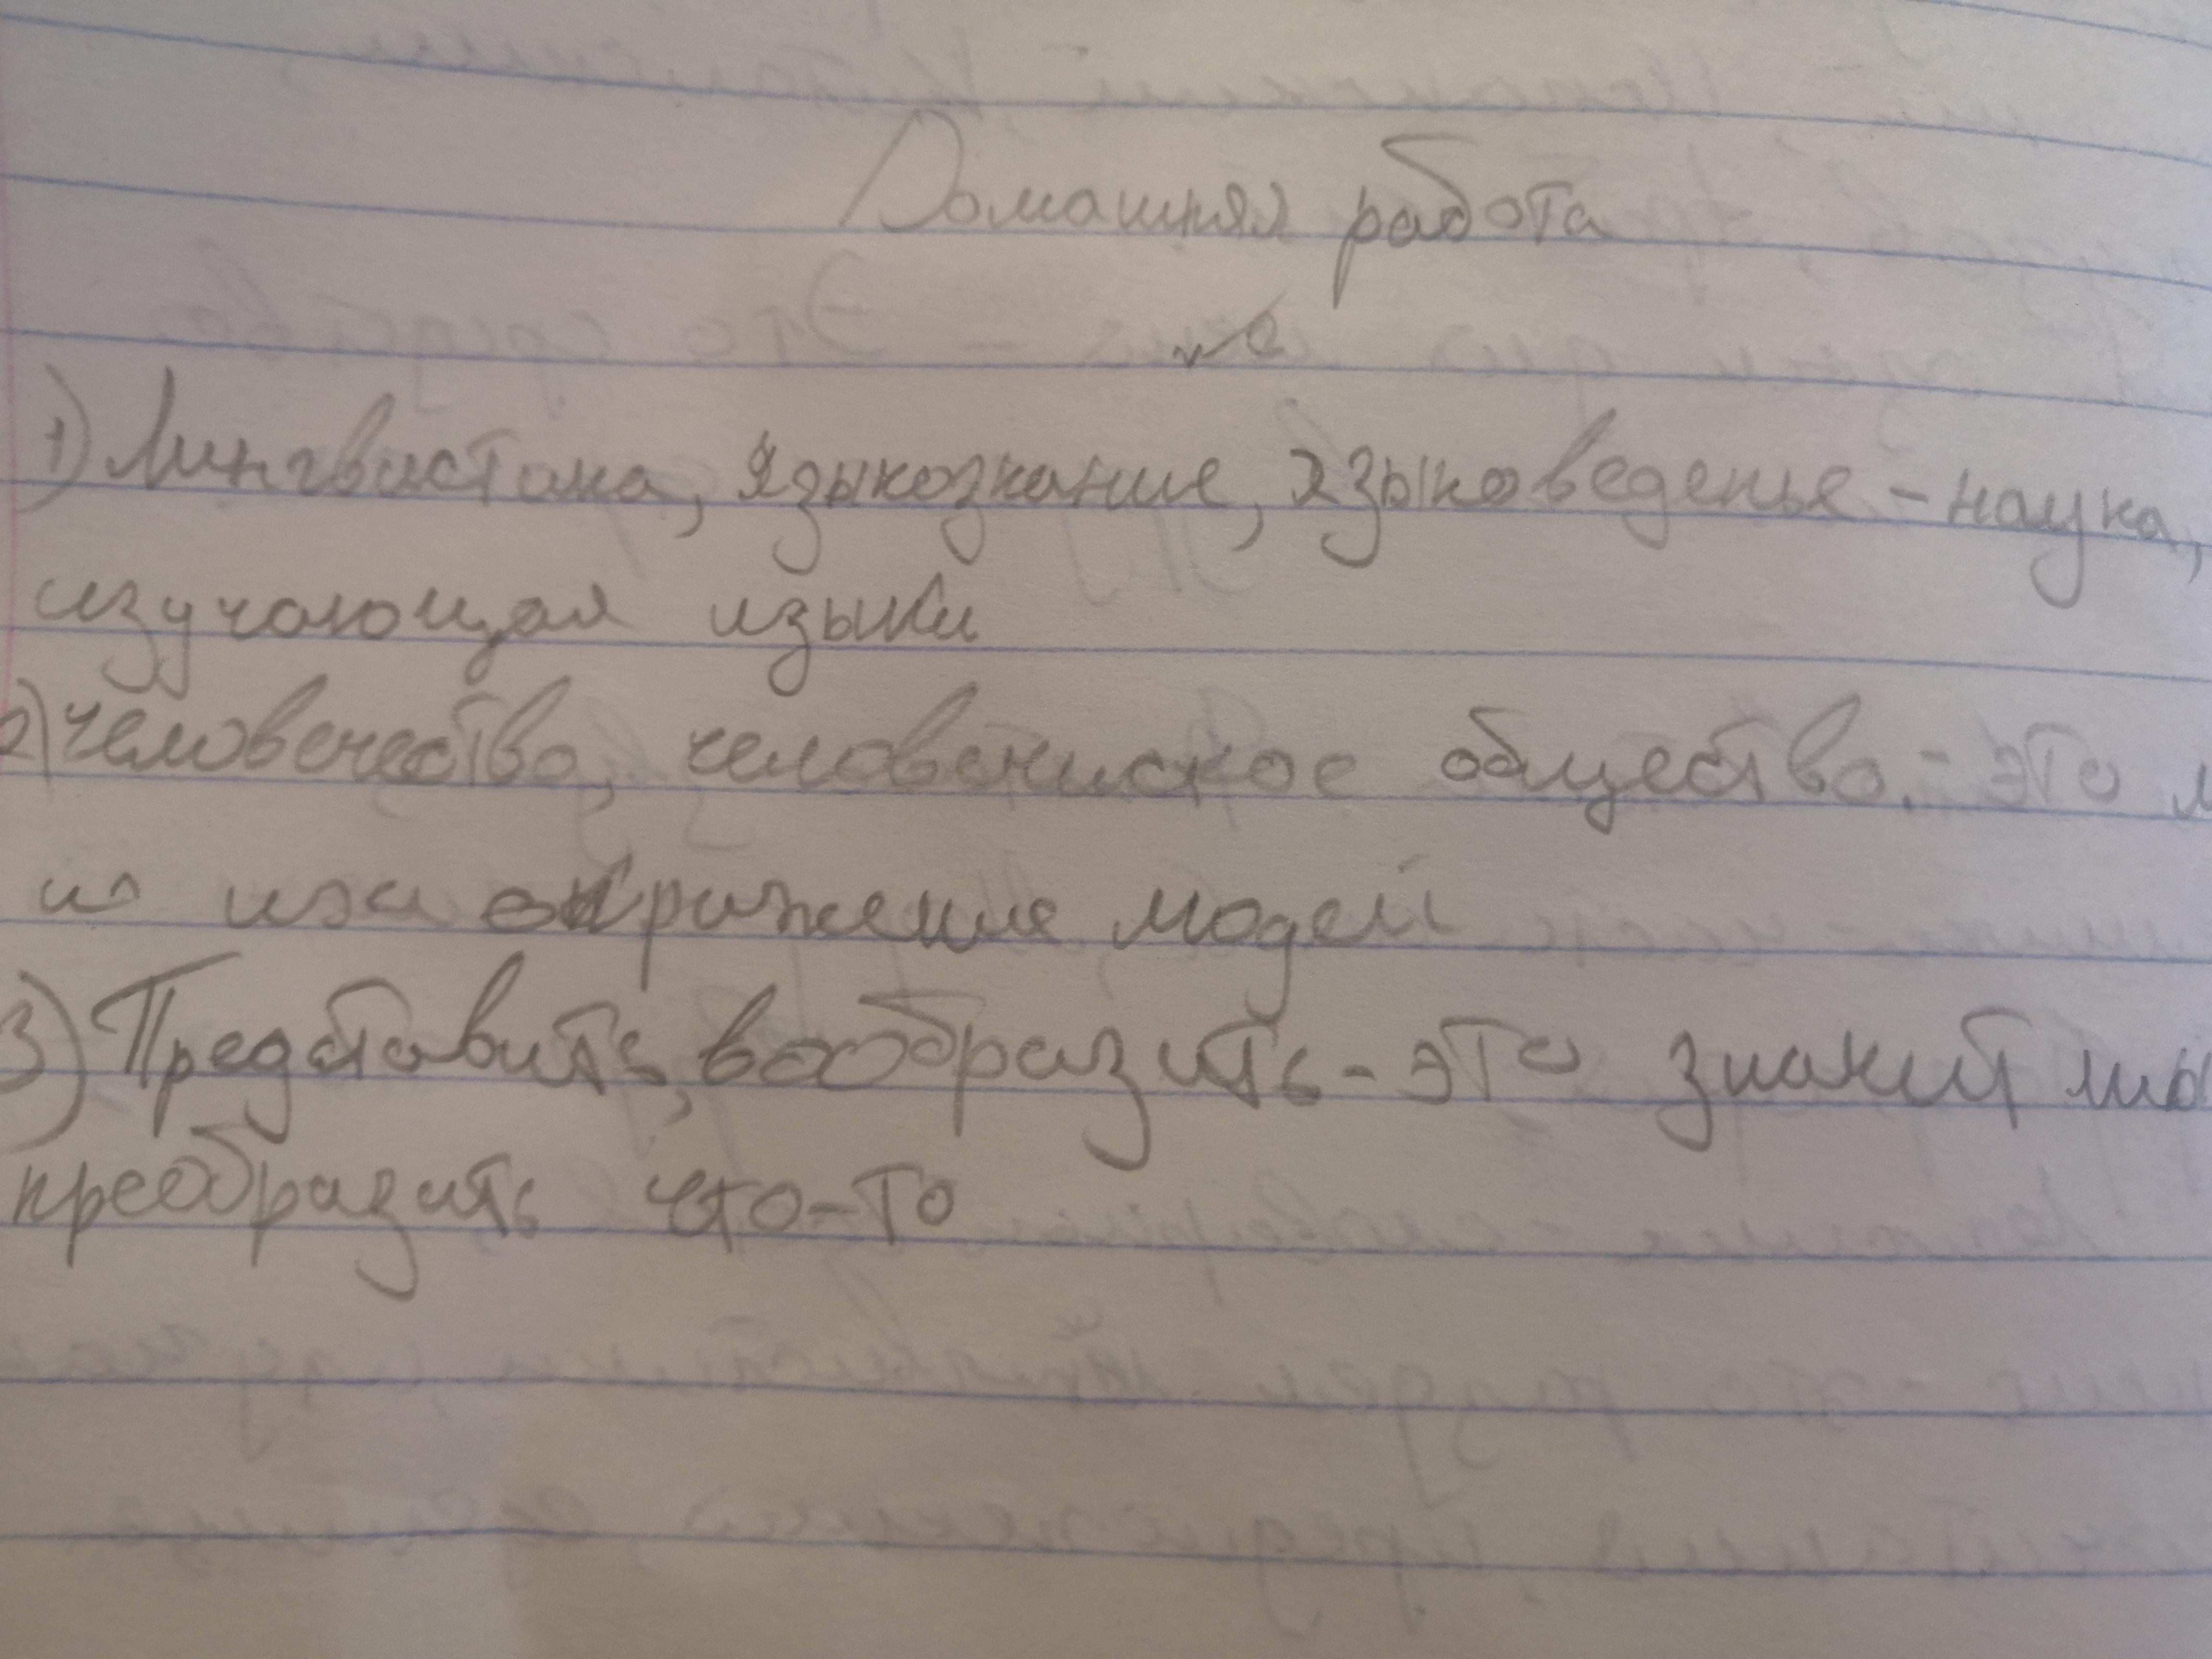 Домашняя работа
1) Лингвистика, языкознание, языковеденье - наука,
изучающая языки
2) Человечество, человениское общество. - это
людей
3) Предбтавить, вообразить - это значит мы
преобразить что-то